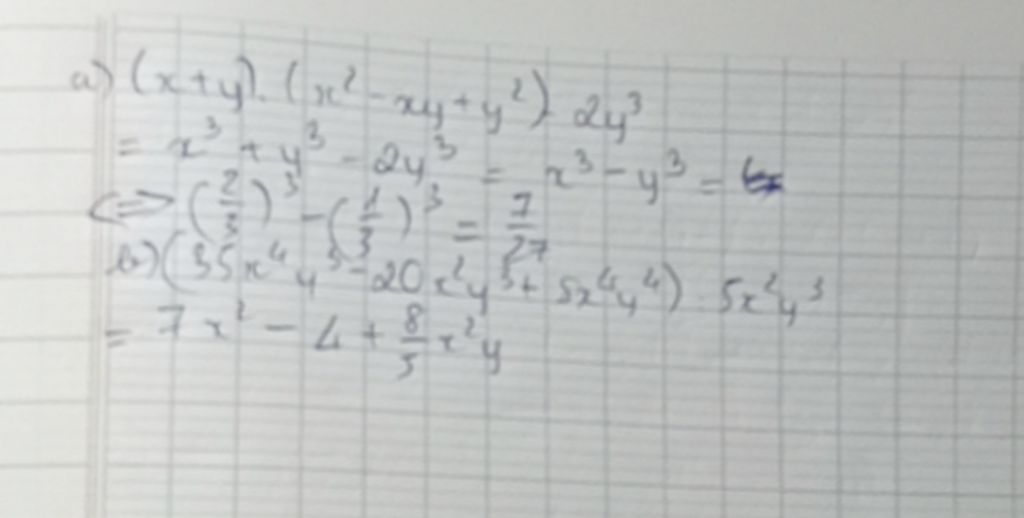 a) (x+y).(x² - xy + y²) - 2y³
= x³ + y³ - 2y³ = x³ - y³ =
<=> (2/3)³ - (1/3)³ = 7/27
b) (35x⁴y³ - 20x²y³ + 5x⁴y⁴) : 5x²y³
= 7x² - 4 + 8/5 x²y